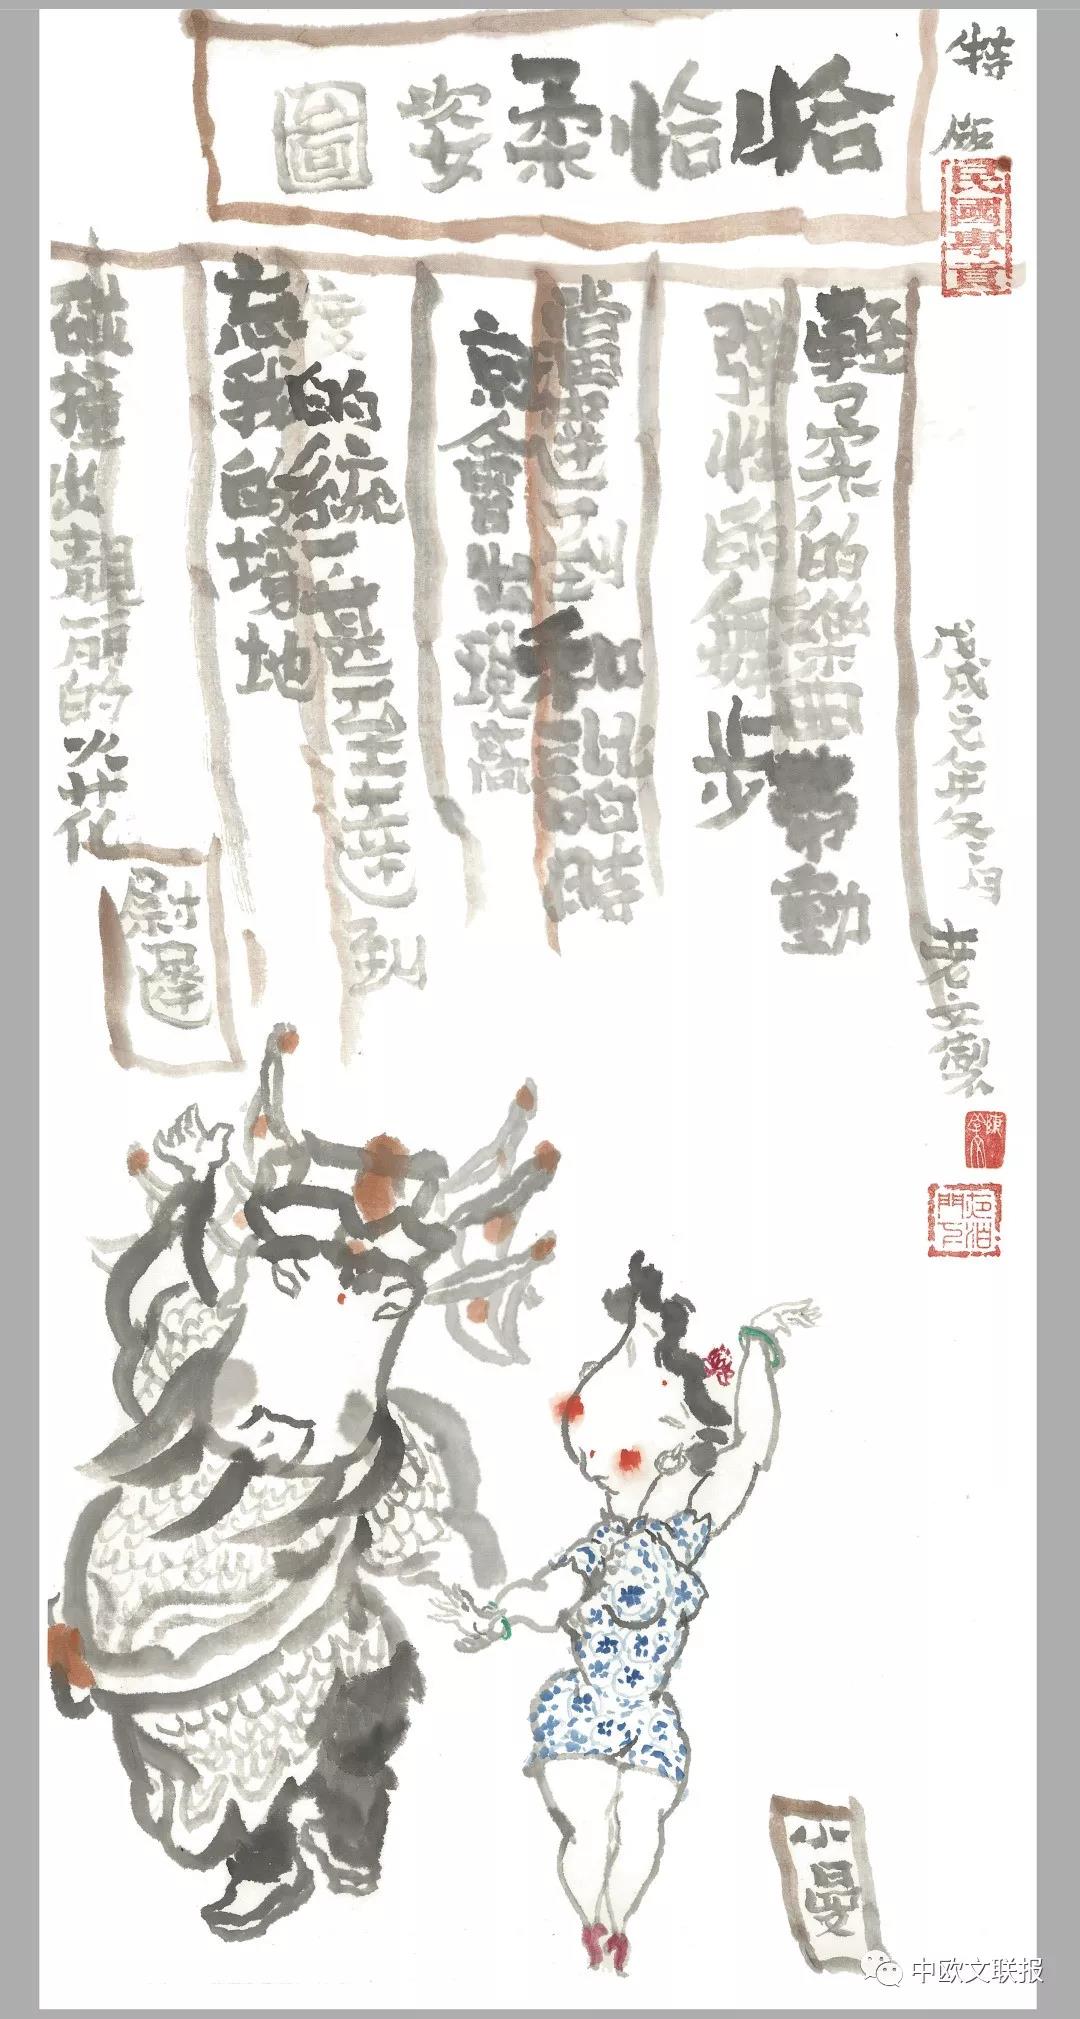 恰恰柔姿圖
輕柔的樂曲帶動
彈性的舞步
當達到和諧時
就會出現高
度的統一甚至達到
忘我的境地
碰撞出靚麗的火花
尉遲
特
戊戌元年冬月
老文製
小曼
中欧文联报